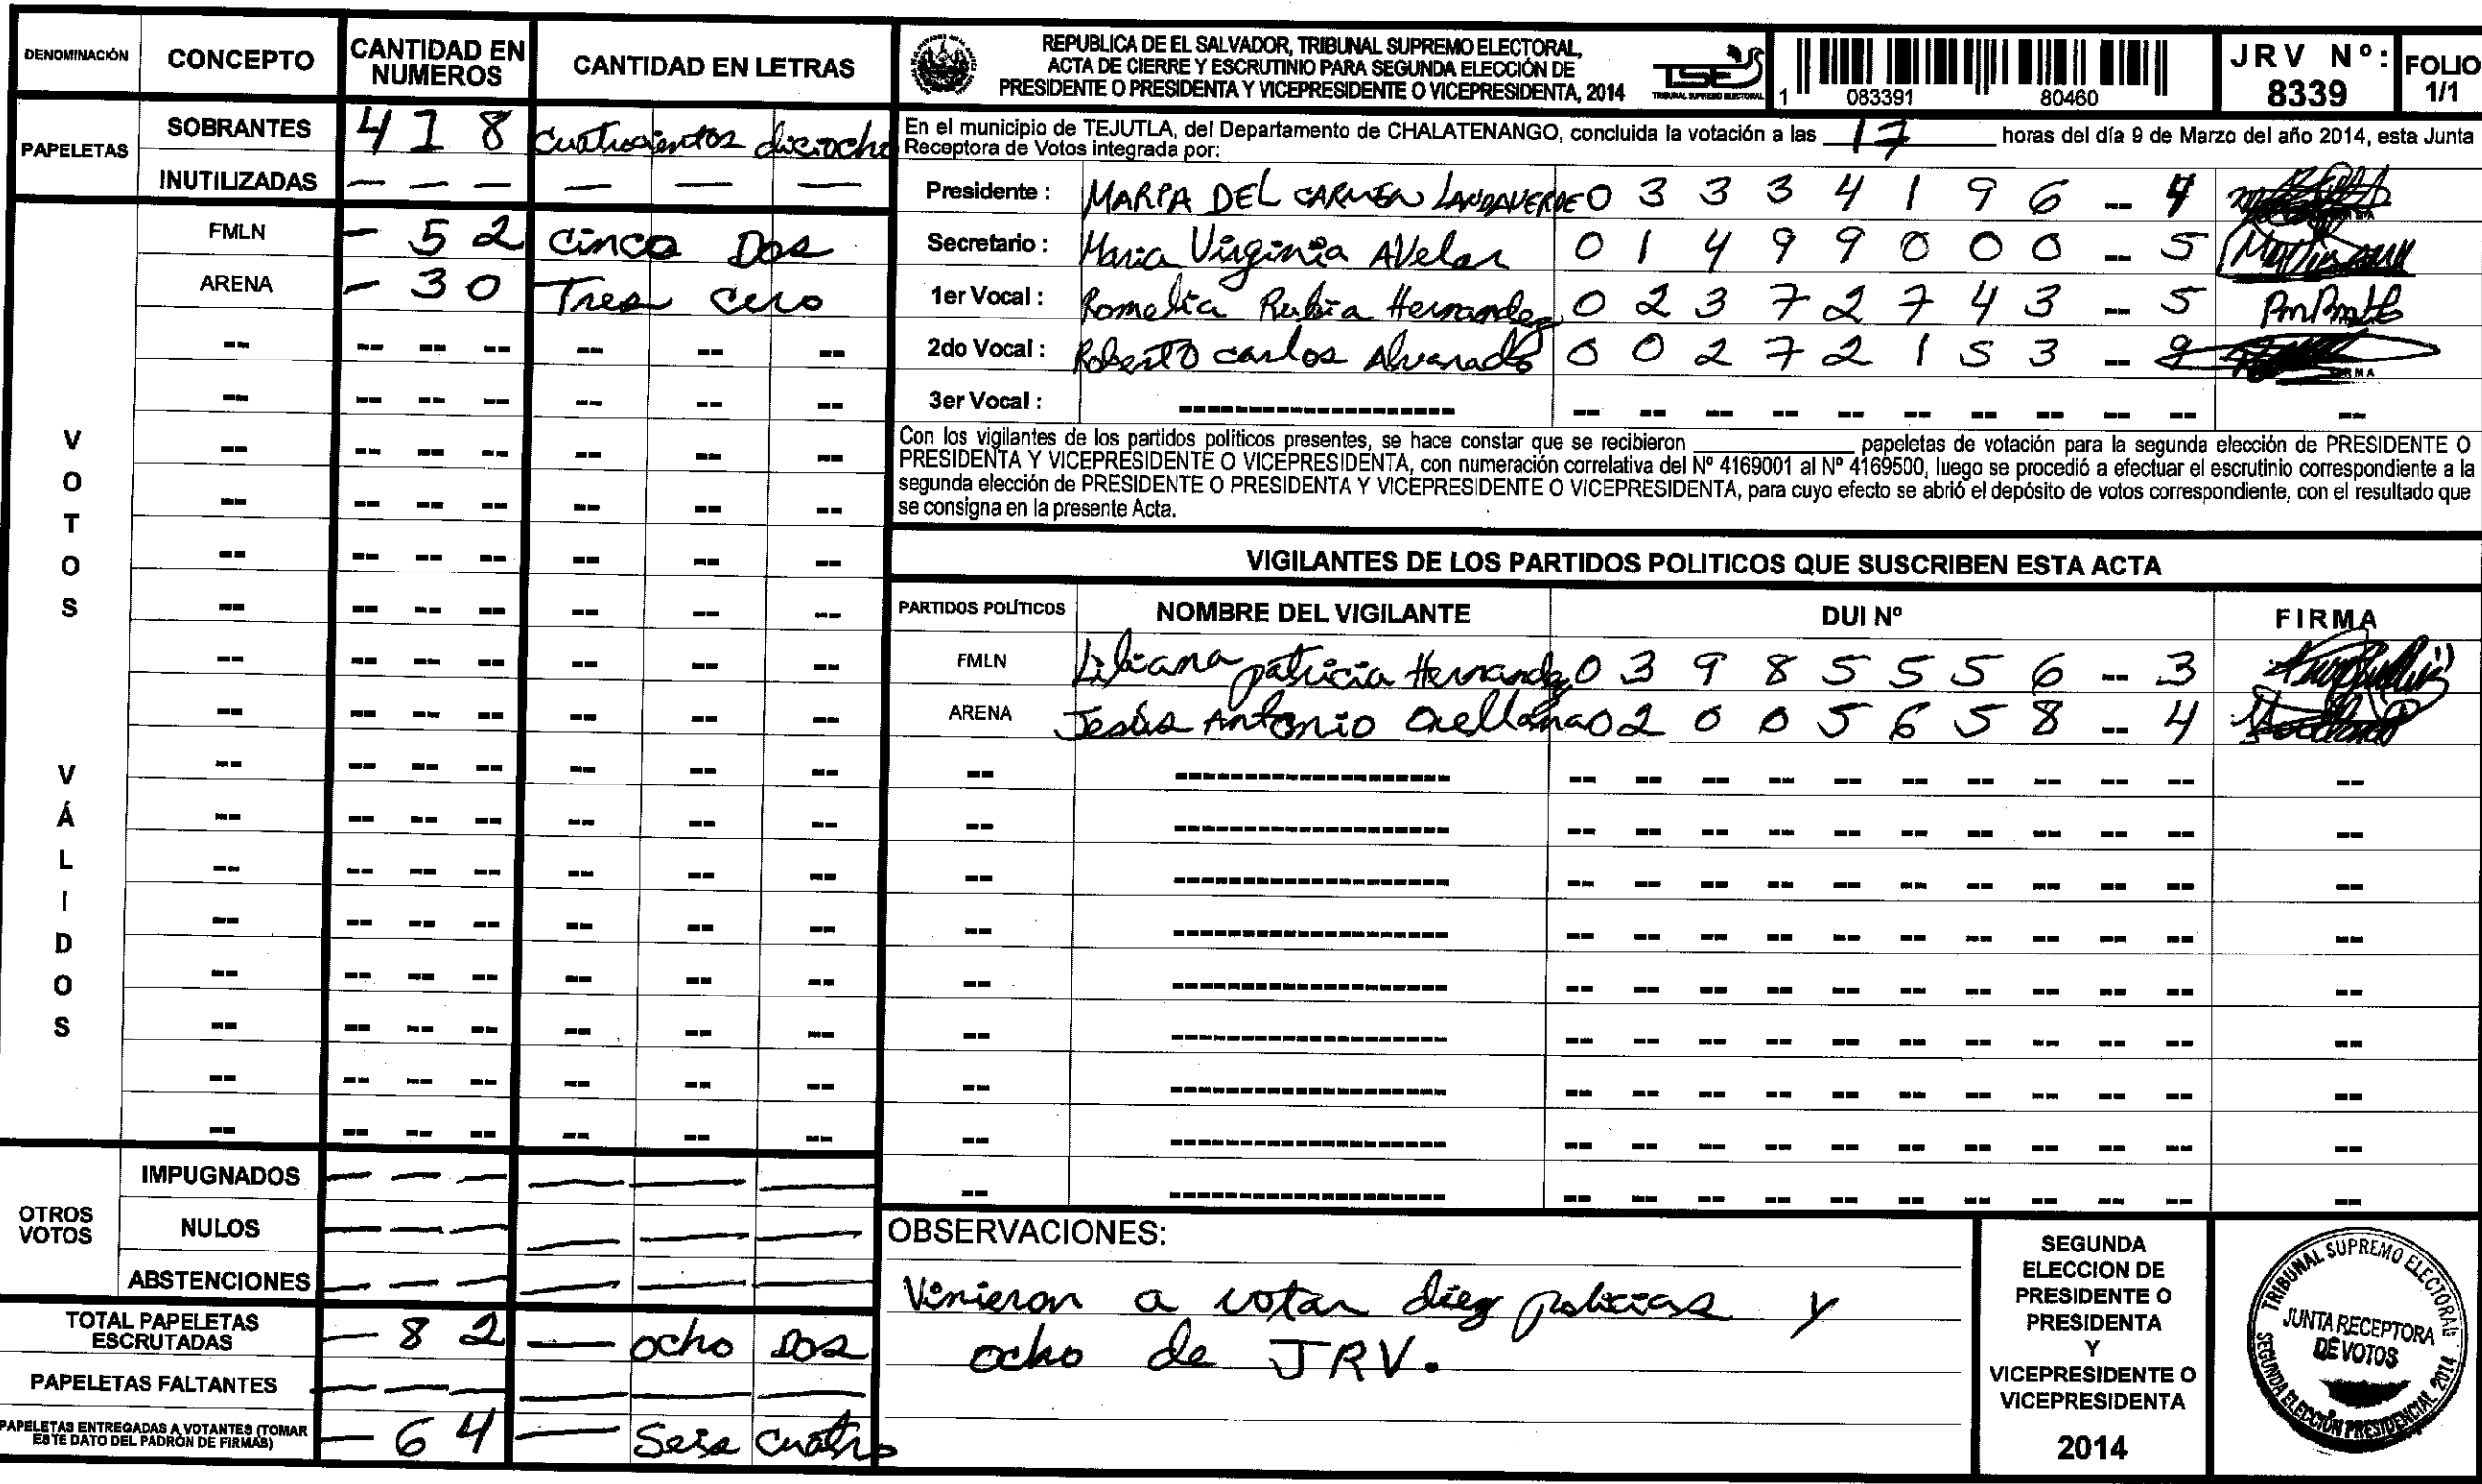 DENOMINACIÓN CONCEPTO CANTIDAD EN NUMEROS CANTIDAD EN LETRAS
PAPELETAS
SOBRANTES 4 1 8 Cuatrocientos dieciocho
INUTILIZADAS — — — — — —
VOTOS VÁLIDOS
FMLN - 5 2 cinco Dos
ARENA - 3 0 Tres cero
OTROS VOTOS
IMPUGNADOS — — — — — —
NULOS — — — — — —
ABSTENCIONES — — — — — —
TOTAL PAPELETAS ESCRUTADAS — 8 2 — ocho Dos
PAPELETAS FALTANTES — — — — — —
PAPELETAS ENTREGADAS A VOTANTES (TOMAR ESTE DATO DEL PADRÓN DE FIRMAS) — 6 4 — Seis cuatro
REPUBLICA DE EL SALVADOR, TRIBUNAL SUPREMO ELECTORAL,
ACTA DE CIERRE Y ESCRUTINIO PARA SEGUNDA ELECCIÓN DE
PRESIDENTE O PRESIDENTA Y VICEPRESIDENTE O VICEPRESIDENTA, 2014
TSE
TRIBUNAL SUPREMO ELECTORAL
1 083391 80460
JRV Nº: 8339
FOLIO 1/1
En el municipio de TEJUTLA, del Departamento de CHALATENANGO, concluida la votación a las 17 horas del día 9 de Marzo del año 2014, esta Junta
Receptora de Votos integrada por:
Presidente : MARIA DEL CARMEN LANDAVERDE 0 3 3 3 4 1 9 6 -- 4
Secretario : Maria Virginia AVelar 0 1 4 9 9 0 0 0 -- 5
1er Vocal : Romelia Rubia Hernandez 0 2 3 7 2 7 4 3 -- 5
2do Vocal : Roberto carlos Alvarado 0 0 2 7 2 1 5 3 -- 9
3er Vocal : -------------------- -- -- -- -- -- -- -- -- -- -- --
Con los vigilantes de los partidos políticos presentes, se hace constar que se recibieron ____________ papeletas de votación para la segunda elección de PRESIDENTE O
PRESIDENTA Y VICEPRESIDENTE O VICEPRESIDENTA, con numeración correlativa del Nº 4169001 al Nº 4169500, luego se procedió a efectuar el escrutinio correspondiente a la
segunda elección de PRESIDENTE O PRESIDENTA Y VICEPRESIDENTE O VICEPRESIDENTA, para cuyo efecto se abrió el depósito de votos correspondiente, con el resultado que
se consigna en la presente Acta.
VIGILANTES DE LOS PARTIDOS POLITICOS QUE SUSCRIBEN ESTA ACTA
PARTIDOS POLÍTICOS NOMBRE DEL VIGILANTE DUI Nº FIRMA
FMLN Liliana patricia Hernandez 0 3 9 8 5 5 5 6 -- 3
ARENA Jesús Antonio Orellana 0 2 0 0 5 6 5 8 -- 4
OBSERVACIONES:
Vinieron a votar diez policias y
ocho de JRV.
SEGUNDA
ELECCION DE
PRESIDENTE O
PRESIDENTA
Y
VICEPRESIDENTE O
VICEPRESIDENTA
2014
TRIBUNAL SUPREMO ELECTORAL
JUNTA RECEPTORA
DE VOTOS
SEGUNDA ELECCIÓN PRESIDENCIAL 2014